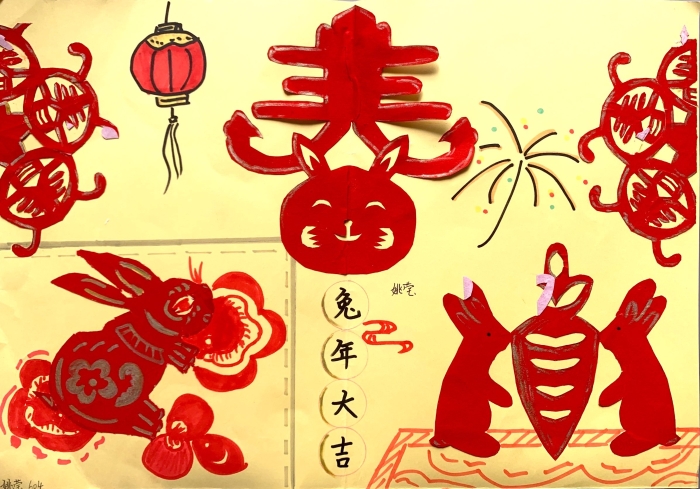 春
姚莹
兔
年
大
吉
姚莹 604